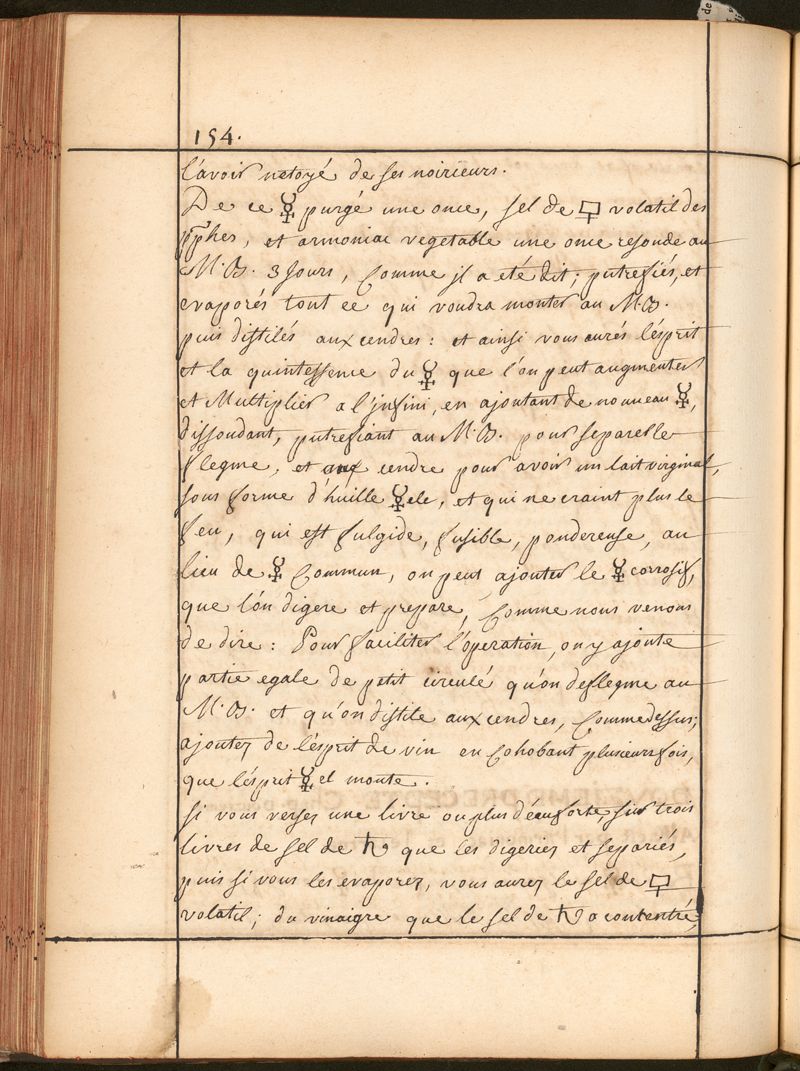 154.
l'avoir netoyé de ses noirceurs.
De ce ☿ purgé une once, sel de 🜿 volatil des
pphes, et armoniac vegetable une once resoude au
M.B. 3 Jours, Comme jl a eté dit; putrefiés, et
evaporés tout ce qui voudra monter au M.B.
puis distilés aux cendres: et ainsi vous aurés l'ésprit
et la quintessence du ☿ que l'on peut augmenter
et Multiplier a l'jnfini, en ajoutant de nouveau ☿,
dissoudant, putrefiant au M.B. pour separer le
flegme, et aux cendre pour avoir un lait virginal,
sous forme d'huille ☿ele, et qui ne craint plus le
feu, qui est fulgide, fusible, pondereuse, au
lieu de ☿ Commun, on peut ajouter le ☿ corrosif,
que l'on digere et prepare, Comme nous venons
de dire: Pour faciliter l'óperation, on y ajoute
partie egale de petit circulé qu'on deflegme au
M.B. et qu'on distile aux cendres, Comme dessus;
ajoutez de l'ésprit de vin en Cohobant plusieurs fois,
que l'ésprit ☿el monte.
si vous versez une livre ou plus d'éau forte, sur trois
livres de sel de ♄ que les digeriez et separiés,
puis si vous les evaporez, vous aurez le sel de 🜿
volatil; du vinaigre que le sel de ♄ a contentré,